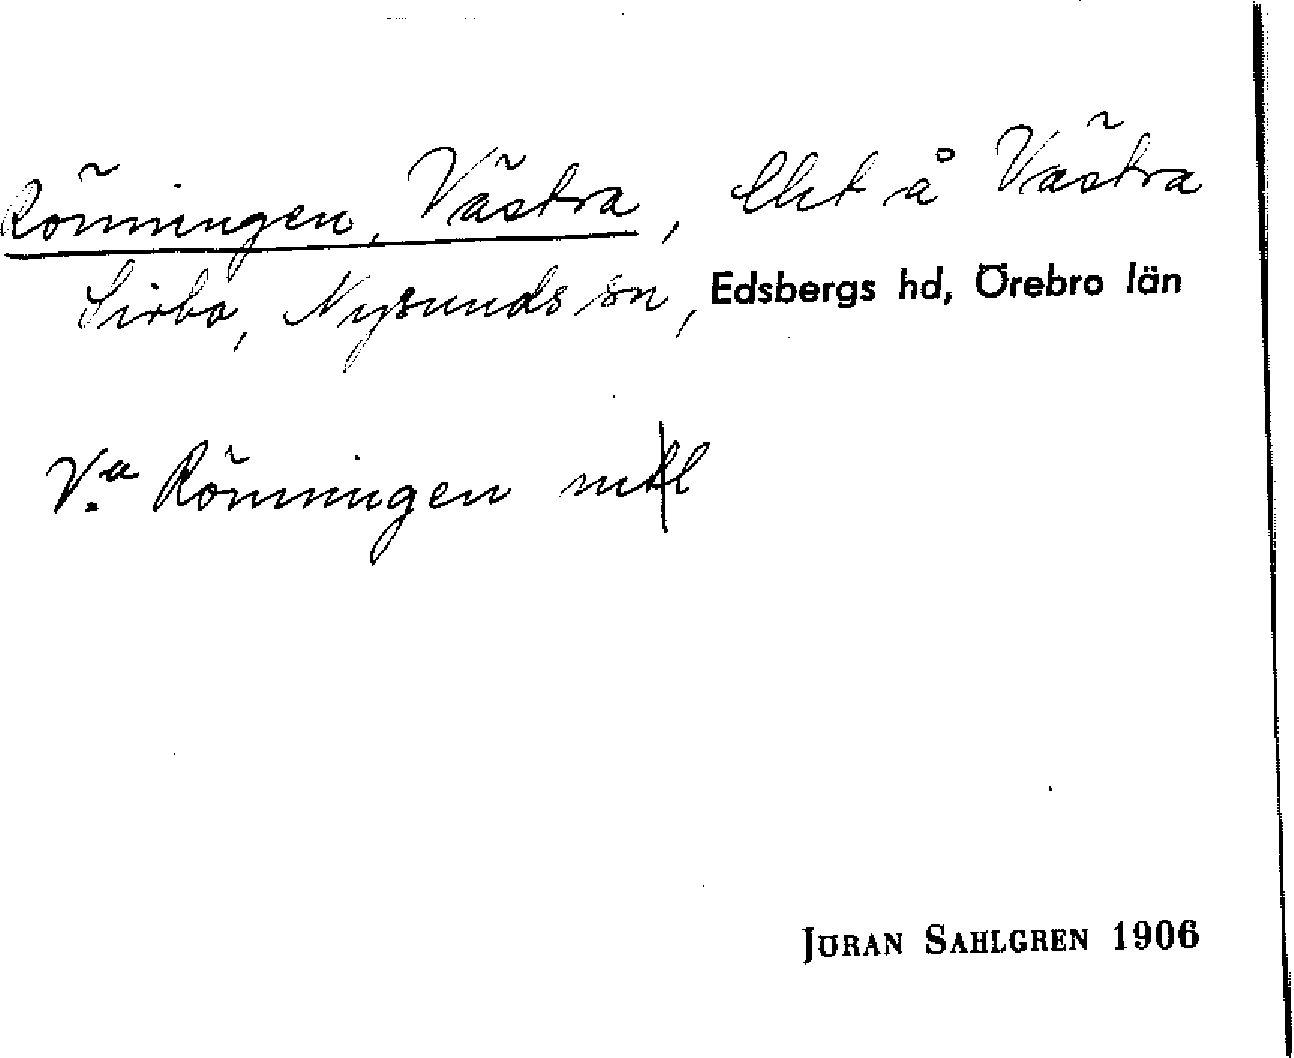 Rönningen, Västra, lht å Västra
Sirbo, Nysunds sn, Edsbergs hd, Örebro län
V.a Rönningen mtl
JÖRAN SAHLGREN 1906